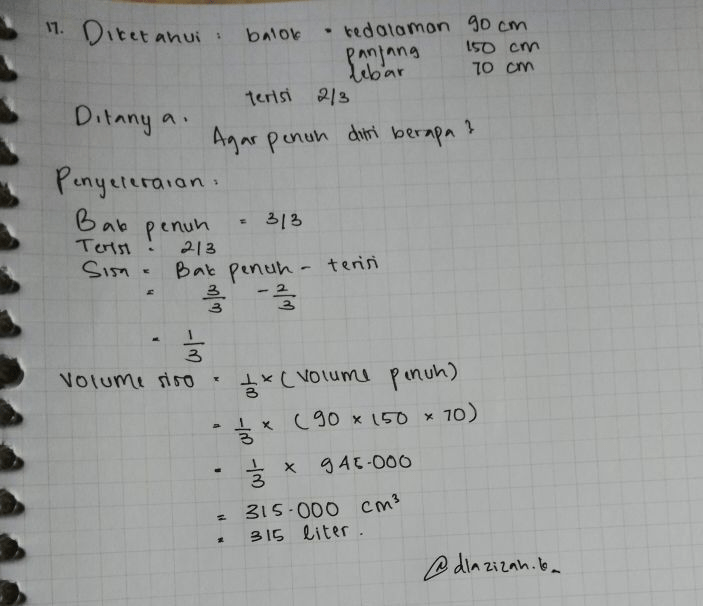 17. Diketahui : balok • kedalaman 90 cm
panjang 150 cm
lebar 70 cm
terisi 2/3
Ditanya.
Agar penuh diisi berapa ?
Penyelesaian :
Bak penuh = 3/3
Terisi : 2/3
Sisa = Bak penuh - terisi
= 3/3 - 2/3
= 1/3
Volume sisa = 1/3 × (Volume penuh)
= 1/3 × (90 × 150 × 70)
= 1/3 × 945.000
= 315.000 cm³
= 315 liter.